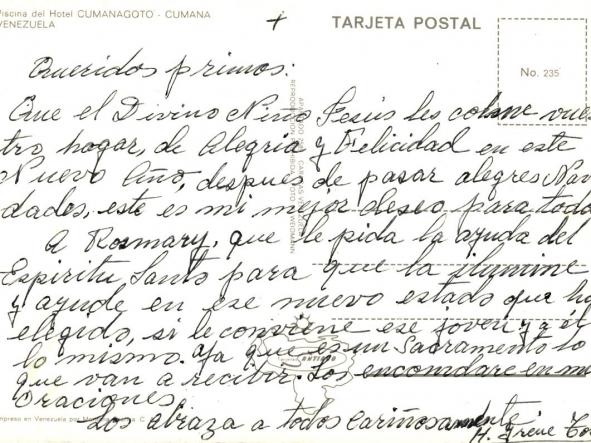 Piscina del Hotel CUMANAGOTO - CUMANA
VENEZUELA
TARJETA POSTAL
No. 235
+
Queridos primos:
Que el Divino Niño Jesús les colme vues
tro hogar, de Alegria y Felicidad en este
Nuevo Año, después de pasar alegres Navi
dades, este es mi mejor deseo para todos
A Rosmary, que le pida la ayuda del
Espíritu Santo para que la ilumine
y ayude en ese nuevo estado que ha
elegido, si le conviene ese joven y a él
lo mismo. Ya que es un Sacramento lo
que van a recibir. Los encomdare en mis
Oraciones.
Los abraza a todos cariñosamente
H. Irene
Impreso en Venezuela por